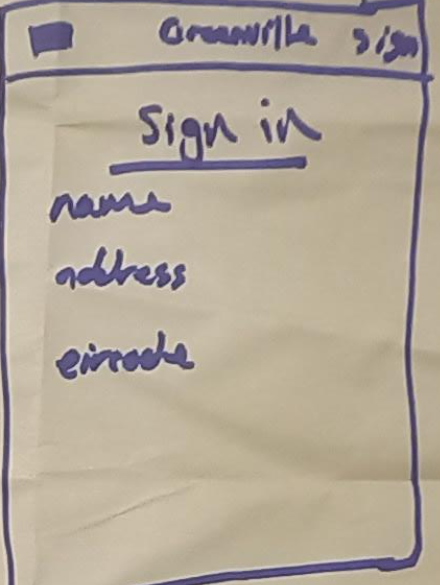 Greenville sign
Sign in
name
address
eircode